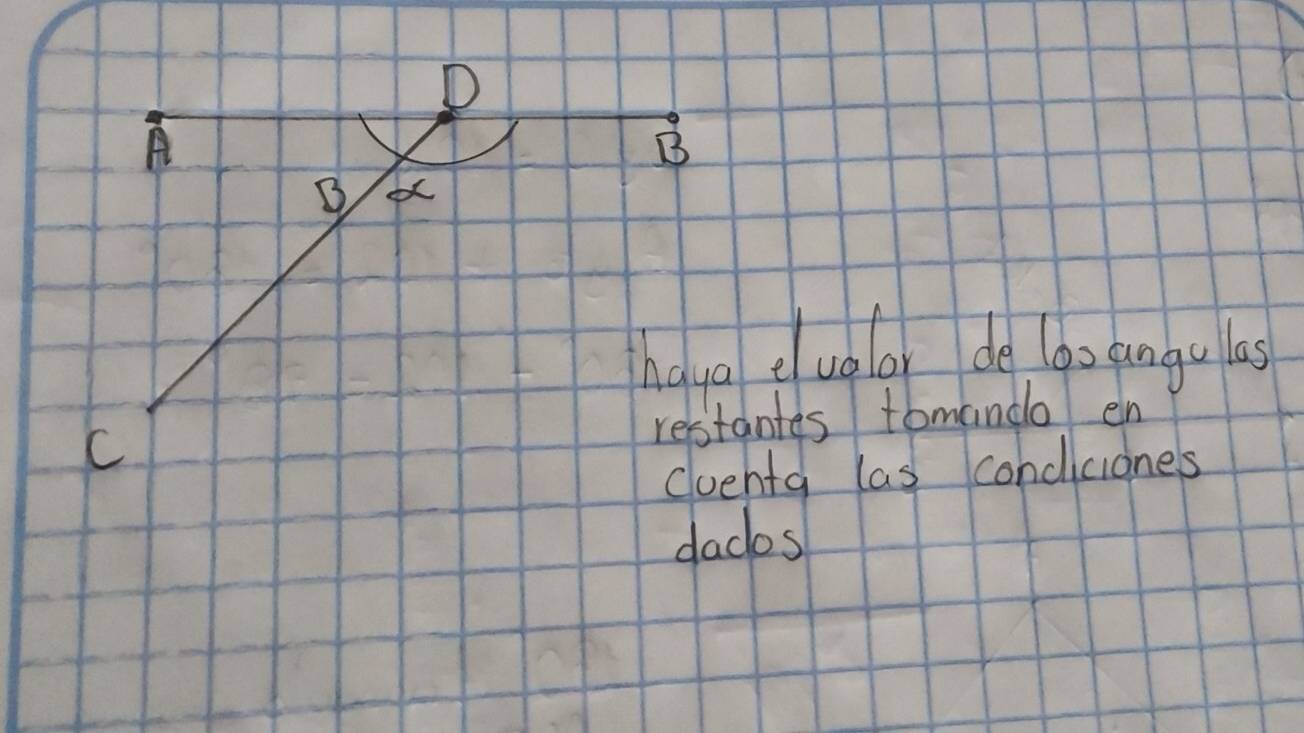 D
A
B
B
α
C
haya el valor de los angulas
restantes tomando en
cuenta las condiciones
dados